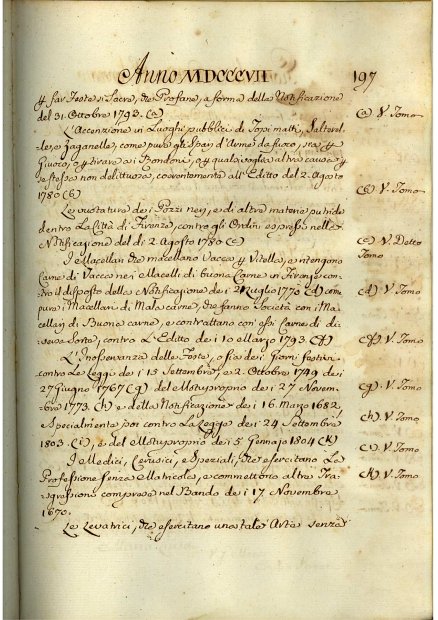 Anno MDCCCVII
197
p far Feste sì Sacre, che Profane, a forma della Notificazione
del 31. Ottobre 1793. (a)
(a) V. Tomo
L'Accenzione in Luoghi pubblici di Topi matti, Salterel-
le, o Zaganelle, come pure gli Spari d'Arme da fuoco, sia p
Giuoco, o p tirare ai Rondoni, o p qualsivoglia altra causa p
se stessa non delittuosa, coerentemente all'Editto del 2. Agosto
1780 (b)
(b) V. Tomo
Le vuotature dei Pozzi neri, e di altre materie putride
dentro La Città di Firenze, contro gli Ordini espressi nella
Notificazione del dì 2. Agosto 1780 (c)
(c) V. Detto
Tomo
I Macellari che macellano Vacca p Vitella, e ritengono
Carne di Vacca nei Macelli di buona Carne in Firenze con-
tro il disposto della Notificazione de i 2 Luglio 1770 (d) come
pure i Macellari di Mala carne, che fanno Società con i Ma-
cellari di Buona carne, e contrattano con essi Carne di di-
versa Sorte, contro L'Editto de i 10 Marzo 1793. (f)
(d) V. Tomo
(f) V. Tomo
L'Inosservanza delle Feste, o sia dei Giorni festivi
contro Le Leggi de i 13 Settembre, e 2. Ottobre 1749 de i
27 Giugno 1767 (g) del Motuproprio de i 27 Novem-
bre 1773. (h) e della Notificazione de i 16. Marzo 1682,
e Specialmente poi contro La Legge de i 24 Settembre
1803. (i), e del Motuproprio dei 5. Gennajo 1804 (k)
(g) V. Tomo
(h) V. Tomo
(i) V. Tomo
(k) V. Tomo
I Medici, Cerusici, e Speziali, che esercitano La
Professione senza Matricola, e commettono altre Tra-
sgressioni comprese nel Bando de i 17 Novembre
1670.
Le Levatrici, che esercitano una tale Arte senza